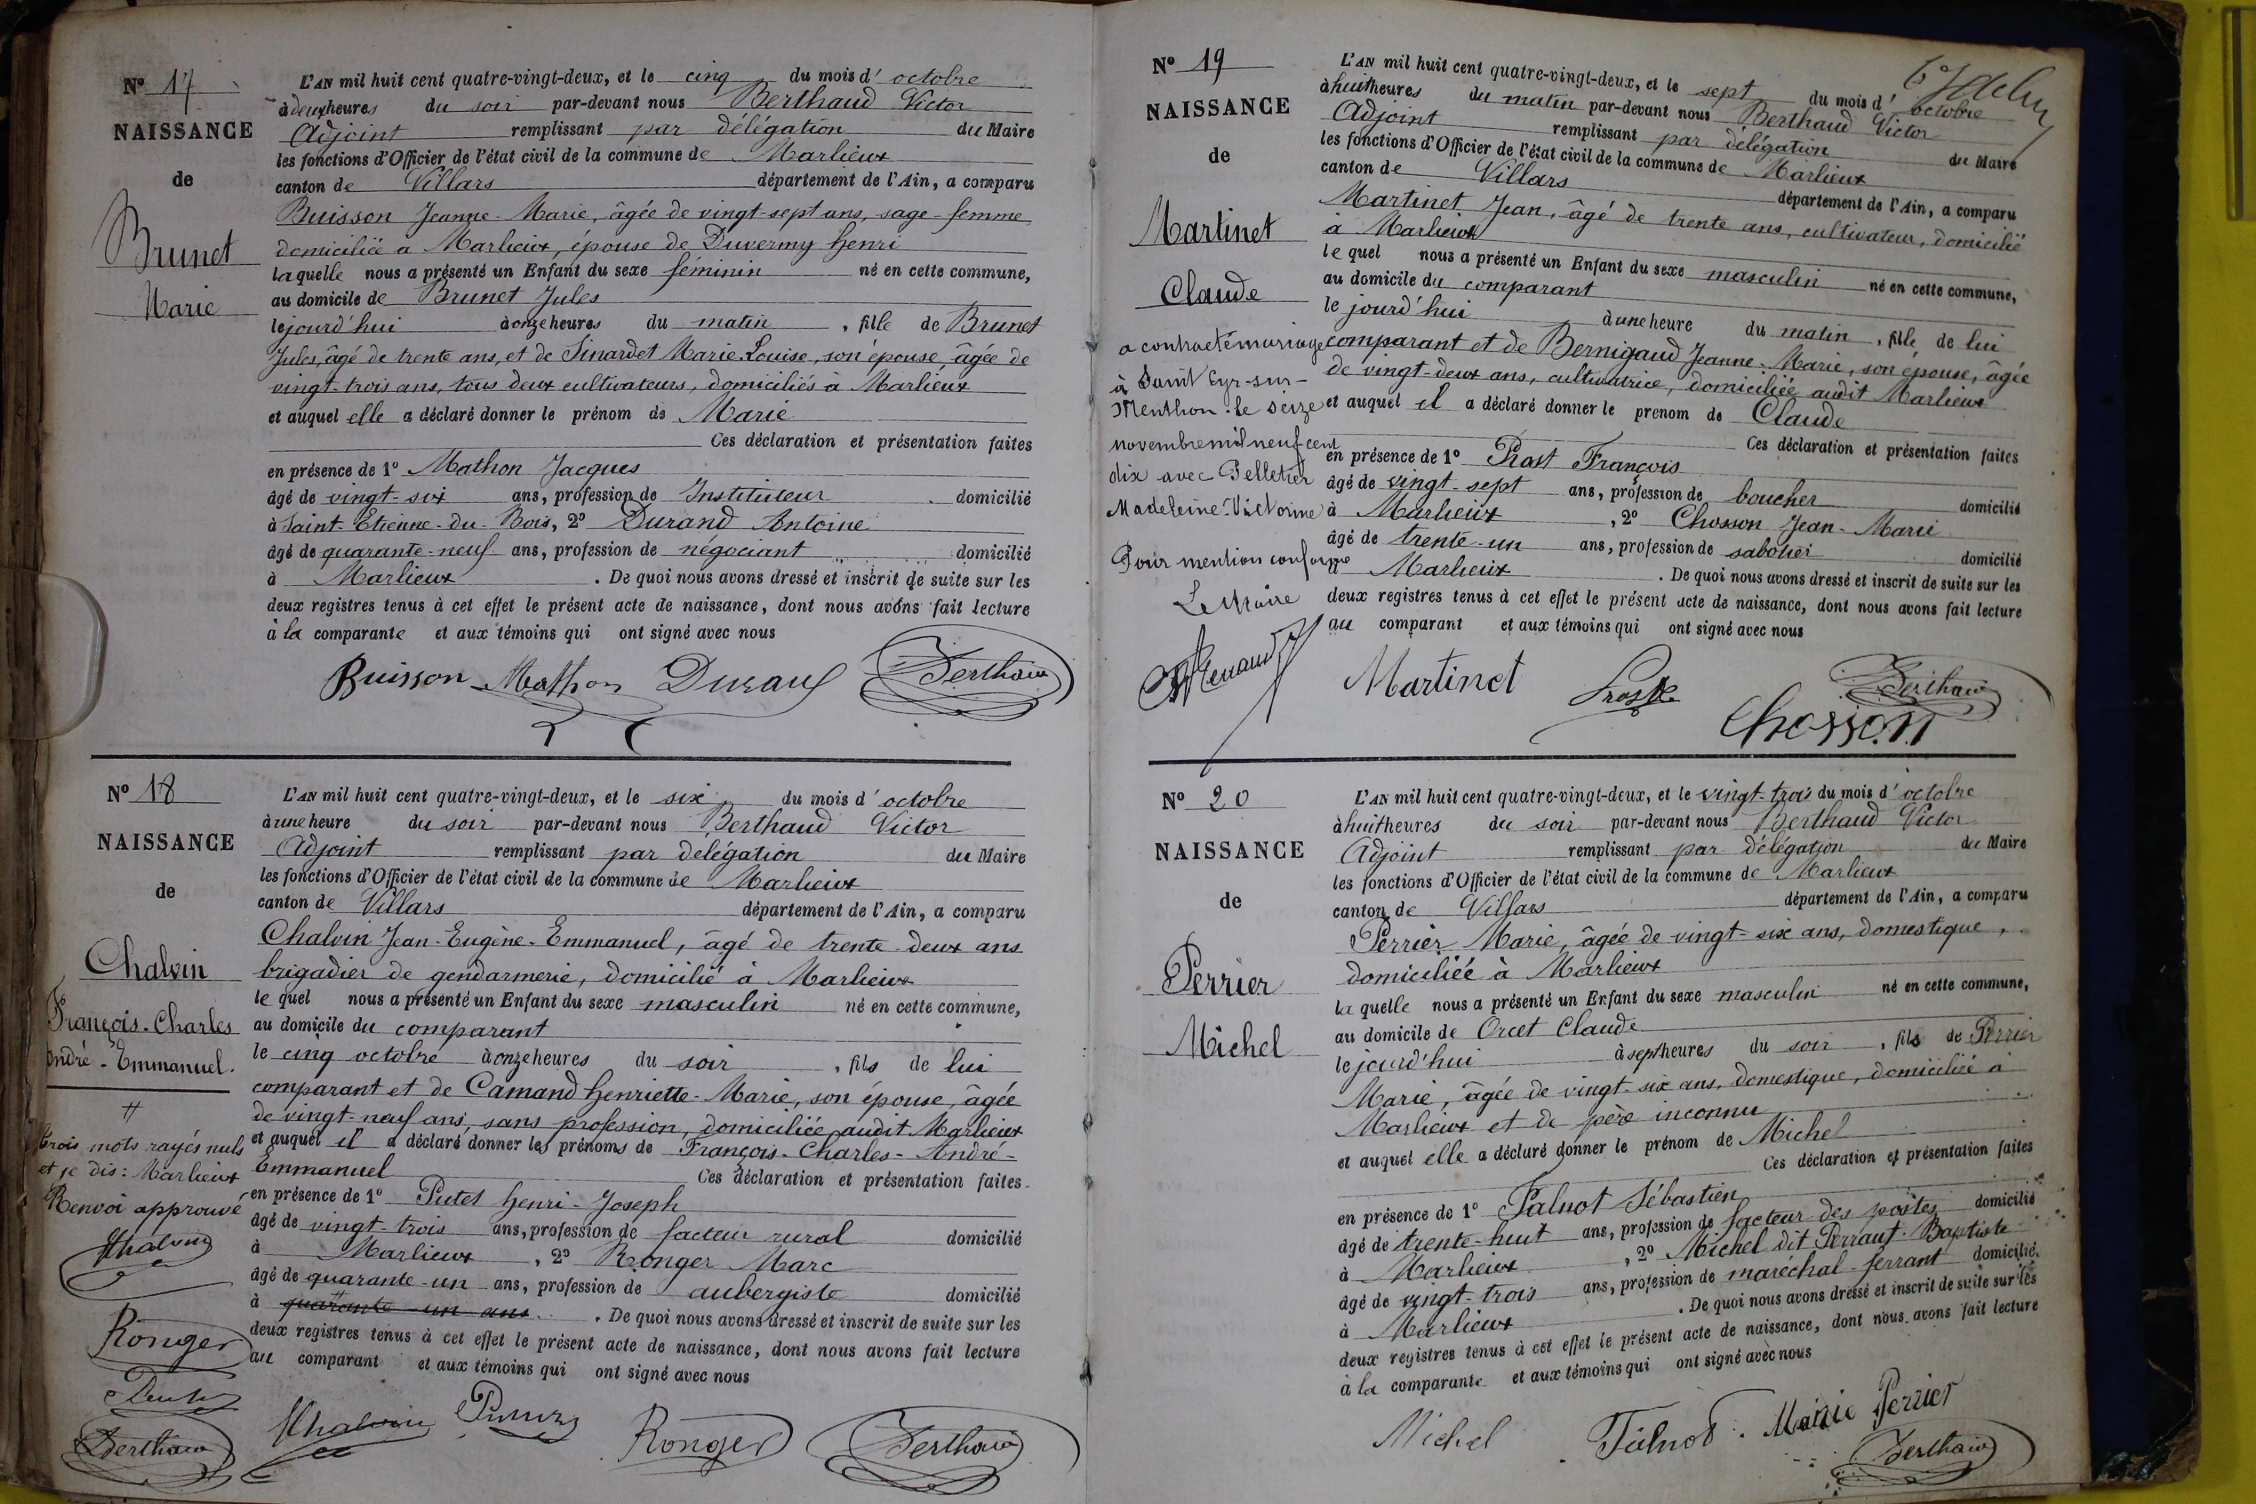 N° 17
NAISSANCE
de
Brunet
Marie
L'AN mil huit cent quatre-vingt-deux, et le cinq du mois d'octobre
à deux heures du soir par-devant nous Berthaud Victor
Adjoint remplissant par délégation du Maire
les fonctions d'Officier de l'état civil de la commune de Marlieux
canton de Villars département de l'Ain, a comparu
Buisson Jeanne-Marie, âgée de vingt-sept ans, sage-femme
domiciliée à Marlieux, épouse de Duvermy Henri
laquelle nous a présenté un Enfant du sexe féminin né en cette commune,
au domicile de Brunet Jules
le jourd'hui à onze heures du matin, fille de Brunet
Jules, âgé de trente ans, et de Sinardet Marie-Louise, son épouse, âgée de
vingt-trois ans, tous deux cultivateurs, domiciliés à Marlieux
et auquel elle a déclaré donner le prénom de Marie
Ces déclaration et présentation faites
en présence de 1° Mathon Jacques
âgé de vingt-six ans, profession de Instituteur domicilié
à Saint-Etienne-du-Bois, 2° Durand Antoine
âgé de quarante-neuf ans, profession de négociant domicilié
à Marlieux. De quoi nous avons dressé et inscrit de suite sur les
deux registres tenus à cet effet le présent acte de naissance, dont nous avons fait lecture
à la comparante et aux témoins qui ont signé avec nous
Buisson Mathon Durand Berthaud
N° 18
NAISSANCE
de
Chalvin
François-Charles
André-Emmanuel.
#
trois mots rayés nuls
et je dis: Marlieux
Renvoi approuvé
Chalvin
Ronger
Putet
Berthaud
L'AN mil huit cent quatre-vingt-deux, et le six du mois d'octobre
à une heure du soir par-devant nous Berthaud Victor
Adjoint remplissant par délégation du Maire
les fonctions d'Officier de l'état civil de la commune de Marlieux
canton de Villars département de l'Ain, a comparu
Chalvin Jean-Eugène-Emmanuel, âgé de trente-deux ans
brigadier de gendarmerie, domicilié à Marlieux
le quel nous a présenté un Enfant du sexe masculin né en cette commune,
au domicile du comparant
le cinq octobre à onze heures du soir, fils de lui
comparant et de Camand Henriette-Marie, son épouse, âgée
de vingt-neuf ans, sans profession, domiciliée audit Marlieux
et auquel il a déclaré donner les prénoms de François-Charles-André-
Emmanuel Ces déclaration et présentation faites
en présence de 1° Putet Henri-Joseph
âgé de vingt-trois ans, profession de facteur rural domicilié
à Marlieux, 2° Ronger Marc
âgé de quarante-un ans, profession de aubergiste domicilié
à quarante-un ans. De quoi nous avons dressé et inscrit de suite sur les
deux registres tenus à cet effet le présent acte de naissance, dont nous avons fait lecture
au comparant et aux témoins qui ont signé avec nous
Chalvin Putet Ronger Berthaud
N° 19
NAISSANCE
de
Martinet
Claude
a contracté mariage
à Saint Cyr-sur-
Menthon le seize
novembre mil neuf cent
dix avec Pelletier
Madeleine-Victorine
Pour mention conforme
Le Maire
Renaud
L'AN mil huit cent quatre-vingt-deux, et le sept du mois d'octobre
à huit heures du matin par-devant nous Berthaud Victor
Adjoint remplissant par délégation du Maire
les fonctions d'Officier de l'état civil de la commune de Marlieux
canton de Villars département de l'Ain, a comparu
Martinet Jean, âgé de trente ans, cultivateur, domicilié
à Marlieux
le quel nous a présenté un Enfant du sexe masculin né en cette commune,
au domicile du comparant
le jourd'hui à une heure du matin, fils de lui
comparant et de Bernigaud Jeanne-Marie, son épouse, âgée
de vingt-deux ans, cultivatrice, domiciliée audit Marlieux
et auquel il a déclaré donner le prenom de Claude
Ces déclaration et présentation faites
en présence de 1° Prost François
âgé de vingt-sept ans, profession de boucher domicilié
à Marlieux, 2° Chosson Jean-Marie
âgé de trente-un ans, profession de sabotier domicilié
à Marlieux. De quoi nous avons dressé et inscrit de suite sur les
deux registres tenus à cet effet le présent acte de naissance, dont nous avons fait lecture
au comparant et aux témoins qui ont signé avec nous
Martinet Prost Berthaud
Chosson
N° 20
NAISSANCE
de
Perrier
Michel
L'AN mil huit cent quatre-vingt-deux, et le vingt-trois du mois d'octobre
à huit heures du soir par-devant nous Berthaud Victor
Adjoint remplissant par délégation du Maire
les fonctions d'Officier de l'état civil de la commune de Marlieux
canton de Villars département de l'Ain, a comparu
Perrier Marie, âgée de vingt-six ans, domestique,
domiciliée à Marlieux
la quelle nous a présenté un Enfant du sexe masculin né en cette commune,
au domicile de Orcet Claude
le jourd'hui à sept heures du soir, fils de Perrier
Marie, âgée de vingt-six ans, domestique, domiciliée à
Marlieux et de père inconnu
et auquel elle a déclaré donner le prénom de Michel
Ces déclaration et présentation faites
en présence de 1° Palnot Sébastien
âgé de trente-huit ans, profession de facteur des postes domicilié
à Marlieux, 2° Michel dit Perraut-Baptiste
âgé de vingt-trois ans, profession de maréchal-ferrant domicilié
à Marlieux. De quoi nous avons dressé et inscrit de suite sur les
deux registres tenus à cet effet le présent acte de naissance, dont nous avons fait lecture
à la comparante et aux témoins qui ont signé avec nous
Michel Palnot Marie Perrier
Berthaud